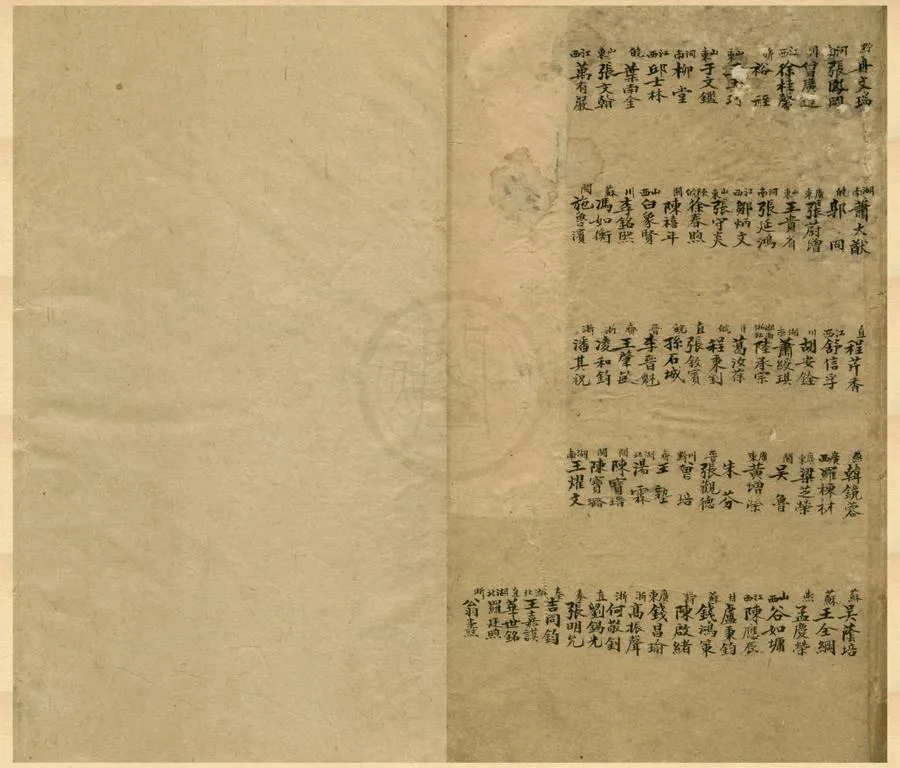 黔 冉文瑞
河南 張鳳岡
川 曾廣
江西 徐桂馨
裕
山東
山東 于文鑑
河南 柳堂
江西 邱士林
皖 葉南金
山東 張文翰
江西 萬有嚴
湖南 蕭大猷
皖 郭同
廣東 張蔚增
山東 王貴省
河南 張延鴻
江西 鄒炳文
山東 張守炎
陝 徐春煦
閩 陳禧年
山西 白象賢
川 李銘熙
蘇 馮如衡
閩 施魯濱
直 程芹香
江西 舒信孚
川 胡安銓
湖南 蕭綬琪
陸承宗
甘 葛汝葆
皖 程秉釗
直 張敘賓
皖 孫石城
晉 李晉魁
齊 王肇敏
浙 凌和鈞
浙 潘其祝
燕 韓鏡蓉
廣西 羅棟材
廣東 梁芝榮
閩 吳魯
廣東 黃增榮
朱芬
晉 張觀德
川黔 曾培
齊 王塾
湖北 湯霖
閩 陳寶瑨
閩 陳寶璐
湖南 王燿文
蘇 吳蔭培
蘇 王全綱
燕 孟慶榮
山西 谷如墉
江西 陳應辰
甘 盧秉鈞
蘇 錢鴻策
黔 陳啟緒
廣東 錢昌瑜
浙 高振聲
浙 何敬釗
直 劉錫光
秦 張明允
秦 吉同鈞
湖北 王嘉謨
直 華世銘
湖北 羅廷煦
浙 翁燾